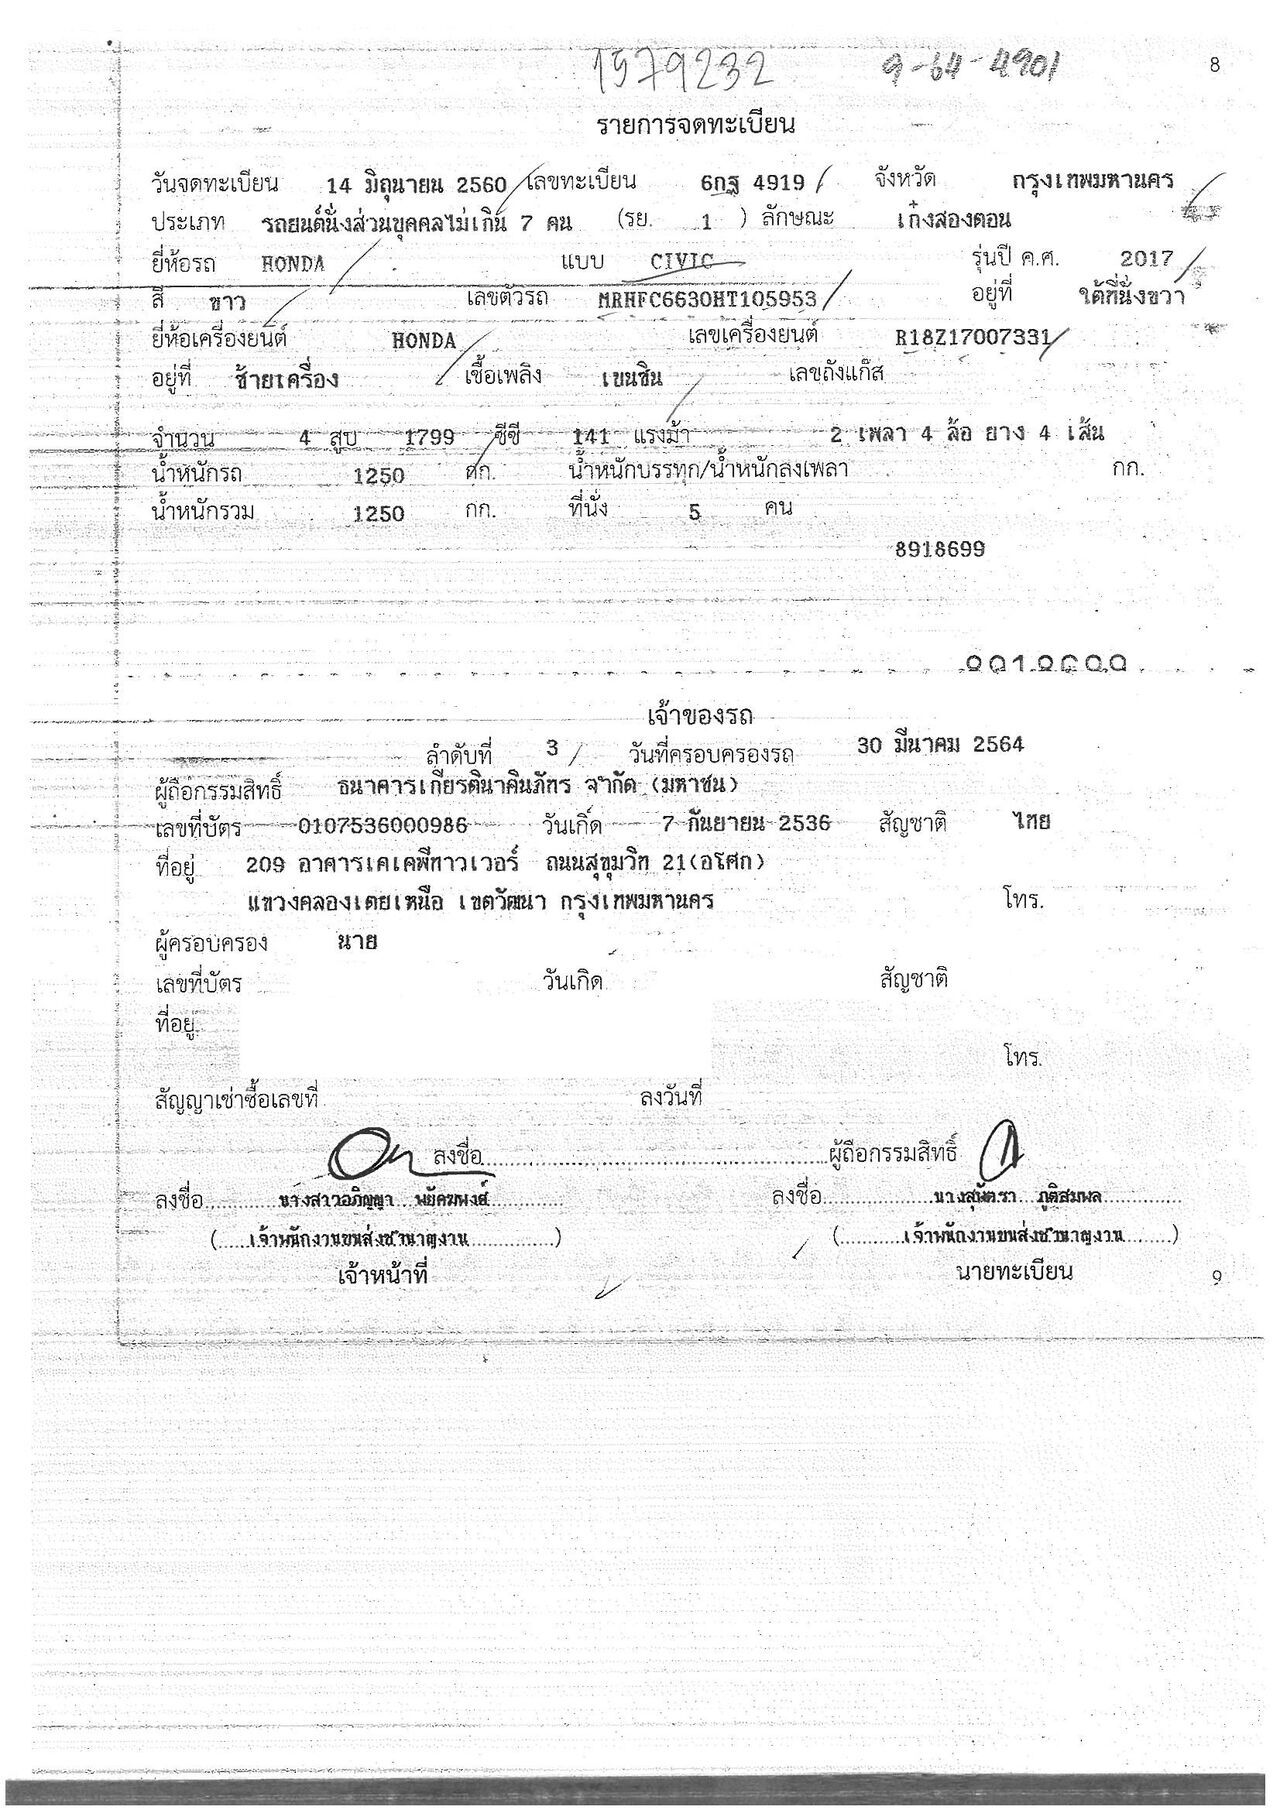 1579232 9-64-4901 8
รายการจดทะเบียน
วันจดทะเบียน 14 มิถุนายน 2560 เลขทะเบียน 6กฐ 4919 จังหวัด กรุงเทพมหานคร
ประเภท รถยนต์นั่งส่วนบุคคลไม่เกิน 7 คน (รย. 1 ) ลักษณะ เก๋งสองตอน
ยี่ห้อรถ HONDA แบบ CIVIC รุ่นปี ค.ศ. 2017
สี ขาว เลขตัวรถ MRHFC6630HT105953 อยู่ที่ ใต้ที่นั่งขวา
ยี่ห้อเครื่องยนต์ HONDA เลขเครื่องยนต์ R18Z17007331
อยู่ที่ ซ้ายเครื่อง เชื้อเพลิง เบนซิน เลขถังแก๊ส
จำนวน 4 สูบ 1799 ซีซี 141 แรงม้า 2 เพลา 4 ล้อ ยาง 4 เส้น
น้ำหนักรถ 1250 กก. น้ำหนักบรรทุก/น้ำหนักลงเพลา กก.
น้ำหนักรวม 1250 กก. ที่นั่ง 5 คน
8918699
เจ้าของรถ
ลำดับที่ 3 วันที่ครอบครองรถ 30 มีนาคม 2564
ผู้ถือกรรมสิทธิ์ ธนาคารเกียรตินาคินภัทร จำกัด (มหาชน)
เลขที่บัตร 0107536000986 วันเกิด 7 กันยายน 2536 สัญชาติ ไทย
ที่อยู่ 209 อาคารเคเคพีทาวเวอร์ ถนนสุขุมวิท 21(อโศก)
แขวงคลองเตยเหนือ เขตวัฒนา กรุงเทพมหานคร โทร.
ผู้ครอบครอง นาย
เลขที่บัตร วันเกิด สัญชาติ
ที่อยู่
โทร.
สัญญาเช่าซื้อเลขที่ ลงวันที่
ลงชื่อ ผู้ถือกรรมสิทธิ์
ลงชื่อ นางสาวอภิญญา พยัคฆพงษ์ ลงชื่อ นางสุพัตรา ภูติสมพล
(เจ้าพนักงานขนส่งชำนาญงาน) (เจ้าพนักงานขนส่งชำนาญงาน)
เจ้าหน้าที่ นายทะเบียน 9